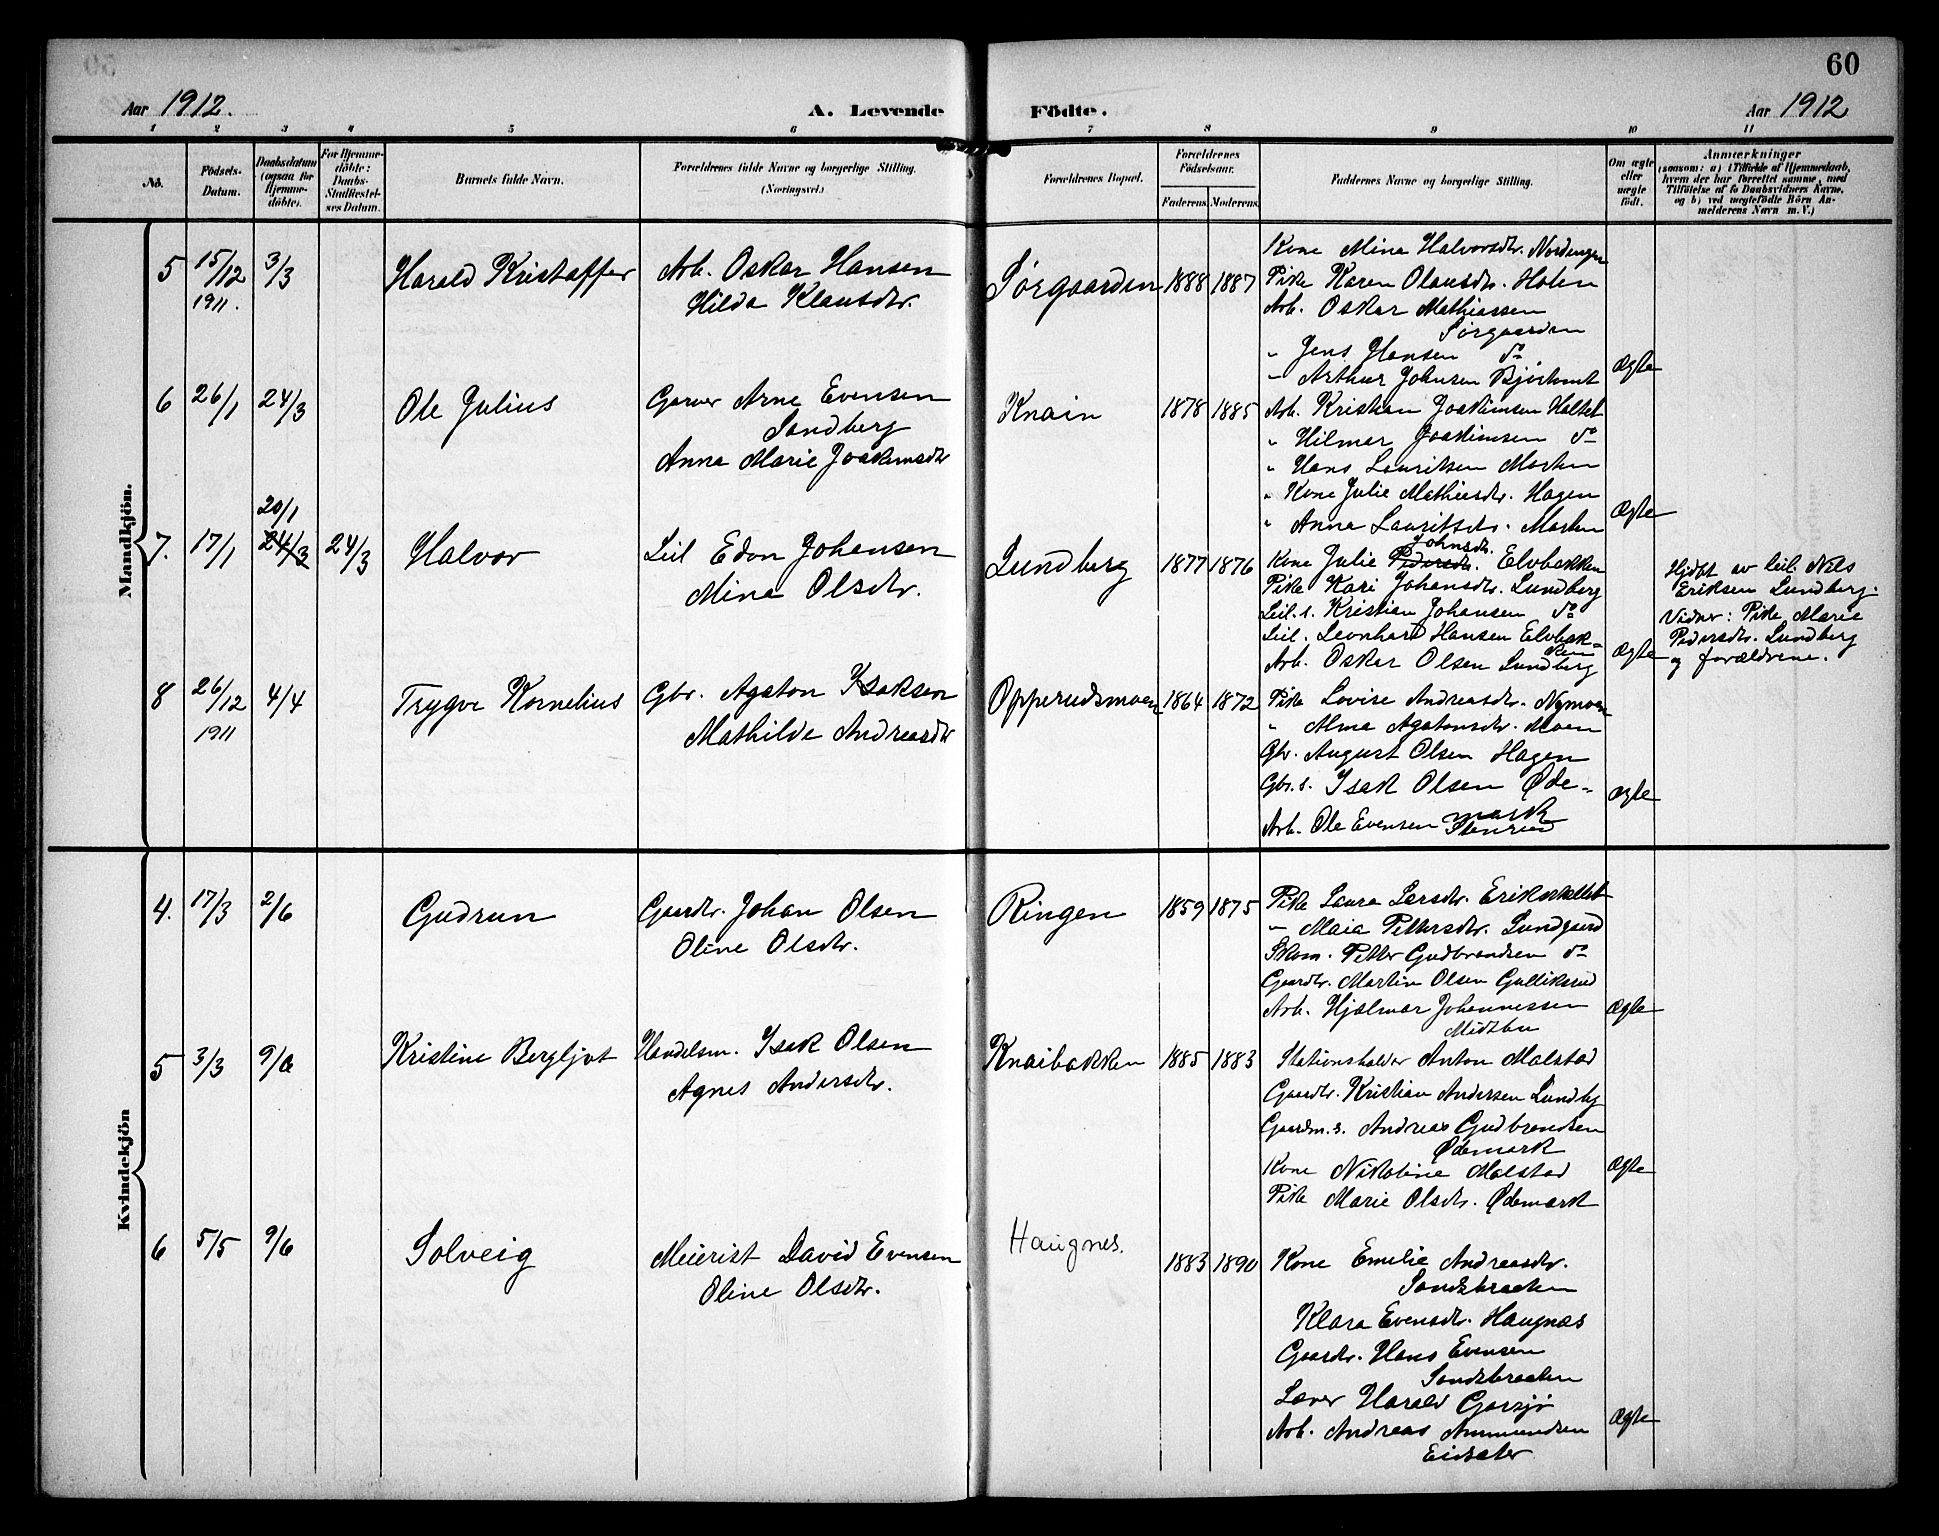 60
Aar 1912.
A. Levende Födte.
Aar 1912
1 2 3 4 5 6 7 8 9 10 11
No.
Födsels-
Datum.
Daabsdatum
(ogsaa for
Hjemme-
döbte).
For Hjemme-
döbte:
Daabs-
Stadfæstel-
ses Datum.
Barnets fulde Navn.
Forældrenes fulde Navne og borgerlige Stilling.
(Næringsvei.)
Forældrenes Bopæl.
Forældrenes
Födselsaar.
Faderens. Moderens.
Faddernes Navne og borgerlige Stilling.
Om ægte
eller
uægte
födt.
Anmærkninger
(saasom: a) i Tilfælde af Hjemmedaab,
hvem der har forrettet samme, med
Tilföielse af to Daabsvidners Navne,
og b) ved uægtefödte Börn An-
melderens Navn m. V.)
Mandkjön.
5 15/12 1911. 3/3
Harald Kristoffer
Arb. Oskar Hansen
Hilda Klausdtr.
Sørgaarden
1888 1887
Kone Mina Halvorsdtr. Nordengen
Pike Karen Olausdtr. Holen
Arb. Oskar Mathiassen
Sørgaarden
" Jens Hansen do
" Arthur Johnsen
Ægte
6 26/1 24/3
Ole Julius
Garver Arne Evensen
Sandberg
Anna Marie Joakimsdtr
Knain
1878 1885
Arb. Kristian Joakimsen Holtet
" Hilmar Joakimsen do
" Hans Lauritsen Morten
" Kone Julie Mathiasdtr. Hagen
" Anna Lauritsdtr. Morten
Ægte
20/1
7. 17/1 24/3 24/3
Halvor
Leil Edon Johansen
Mina Olsdtr.
Lundberg
1877 1876
Johnsdtr.
Kone Julie Pedersdtr. Elvbakken
Pike Kari Johansdtr. Lundberg
Leil. s. Kristian Johansen do
Leil. Leonhard Hansen Elvbak-
ken
Arb. Oskar Olsen Lundberg
Ægte
Hjdøbt av leil. Nils
Eriksen Lundberg.
Vidner: Pike Marie
Pedersdtr. Lundberg
og forældrene.
8 26/12 1911 4/4
Trygve Kornelius
Gbr. Agaton Isaksen
Mathilde Andreasdtr
Opperudsmoen
1864 1872
Pike Lovise Andreasdtr. Nymoen
" Alma Agatonsdtr. Moen
Gbr. August Olsen Hagen
Gbr. s. Isak Olsen Øde-
mark
Arb. Ole Evensen Stenrud
Ægte
Kvindekjön
4. 17/3 2/6
Gudrun
Gaardbr. Johan Olsen
Oline Olsdtr.
Ringen
1859 1875
Pike Laura Larsdtr. Eriksholtet
" Maia Pettersdtr. Lundgaard
Skom. Petter Gudbrandsen do
Gaardbr. Martin Olsen Gulliksrud
Arb. Hjalmar Johannessen
Midtbu
Ægte
5 3/3 9/6
Kristine Bergljot
Handelsm. Isak Olsen
Agnes Andersdtr.
Knaibakken
1885 1883
Stationsholder Anton Molstad
Gaardbr. Kristian Andersen Lundby
Gaardm. s. Andreas Gudbrandsen
Ødemark
Kone Nikoline Molstad
Pike Marie Olsdtr. Ødemark
Ægte
6 5/5 9/6
Solveig
Meierist David Evensen
Oline Olsdtr.
Haugnes.
1883 1890
Kone Emelie Andreasdtr.
Sandsbraaten
Klara Evensdtr. Haugnæs
Gaardbr. Hans Evensen
Sandsbraaten
Lærer Harald Garsjø
Arb. Andreas Ammundsen
Eidsæter
Ægte